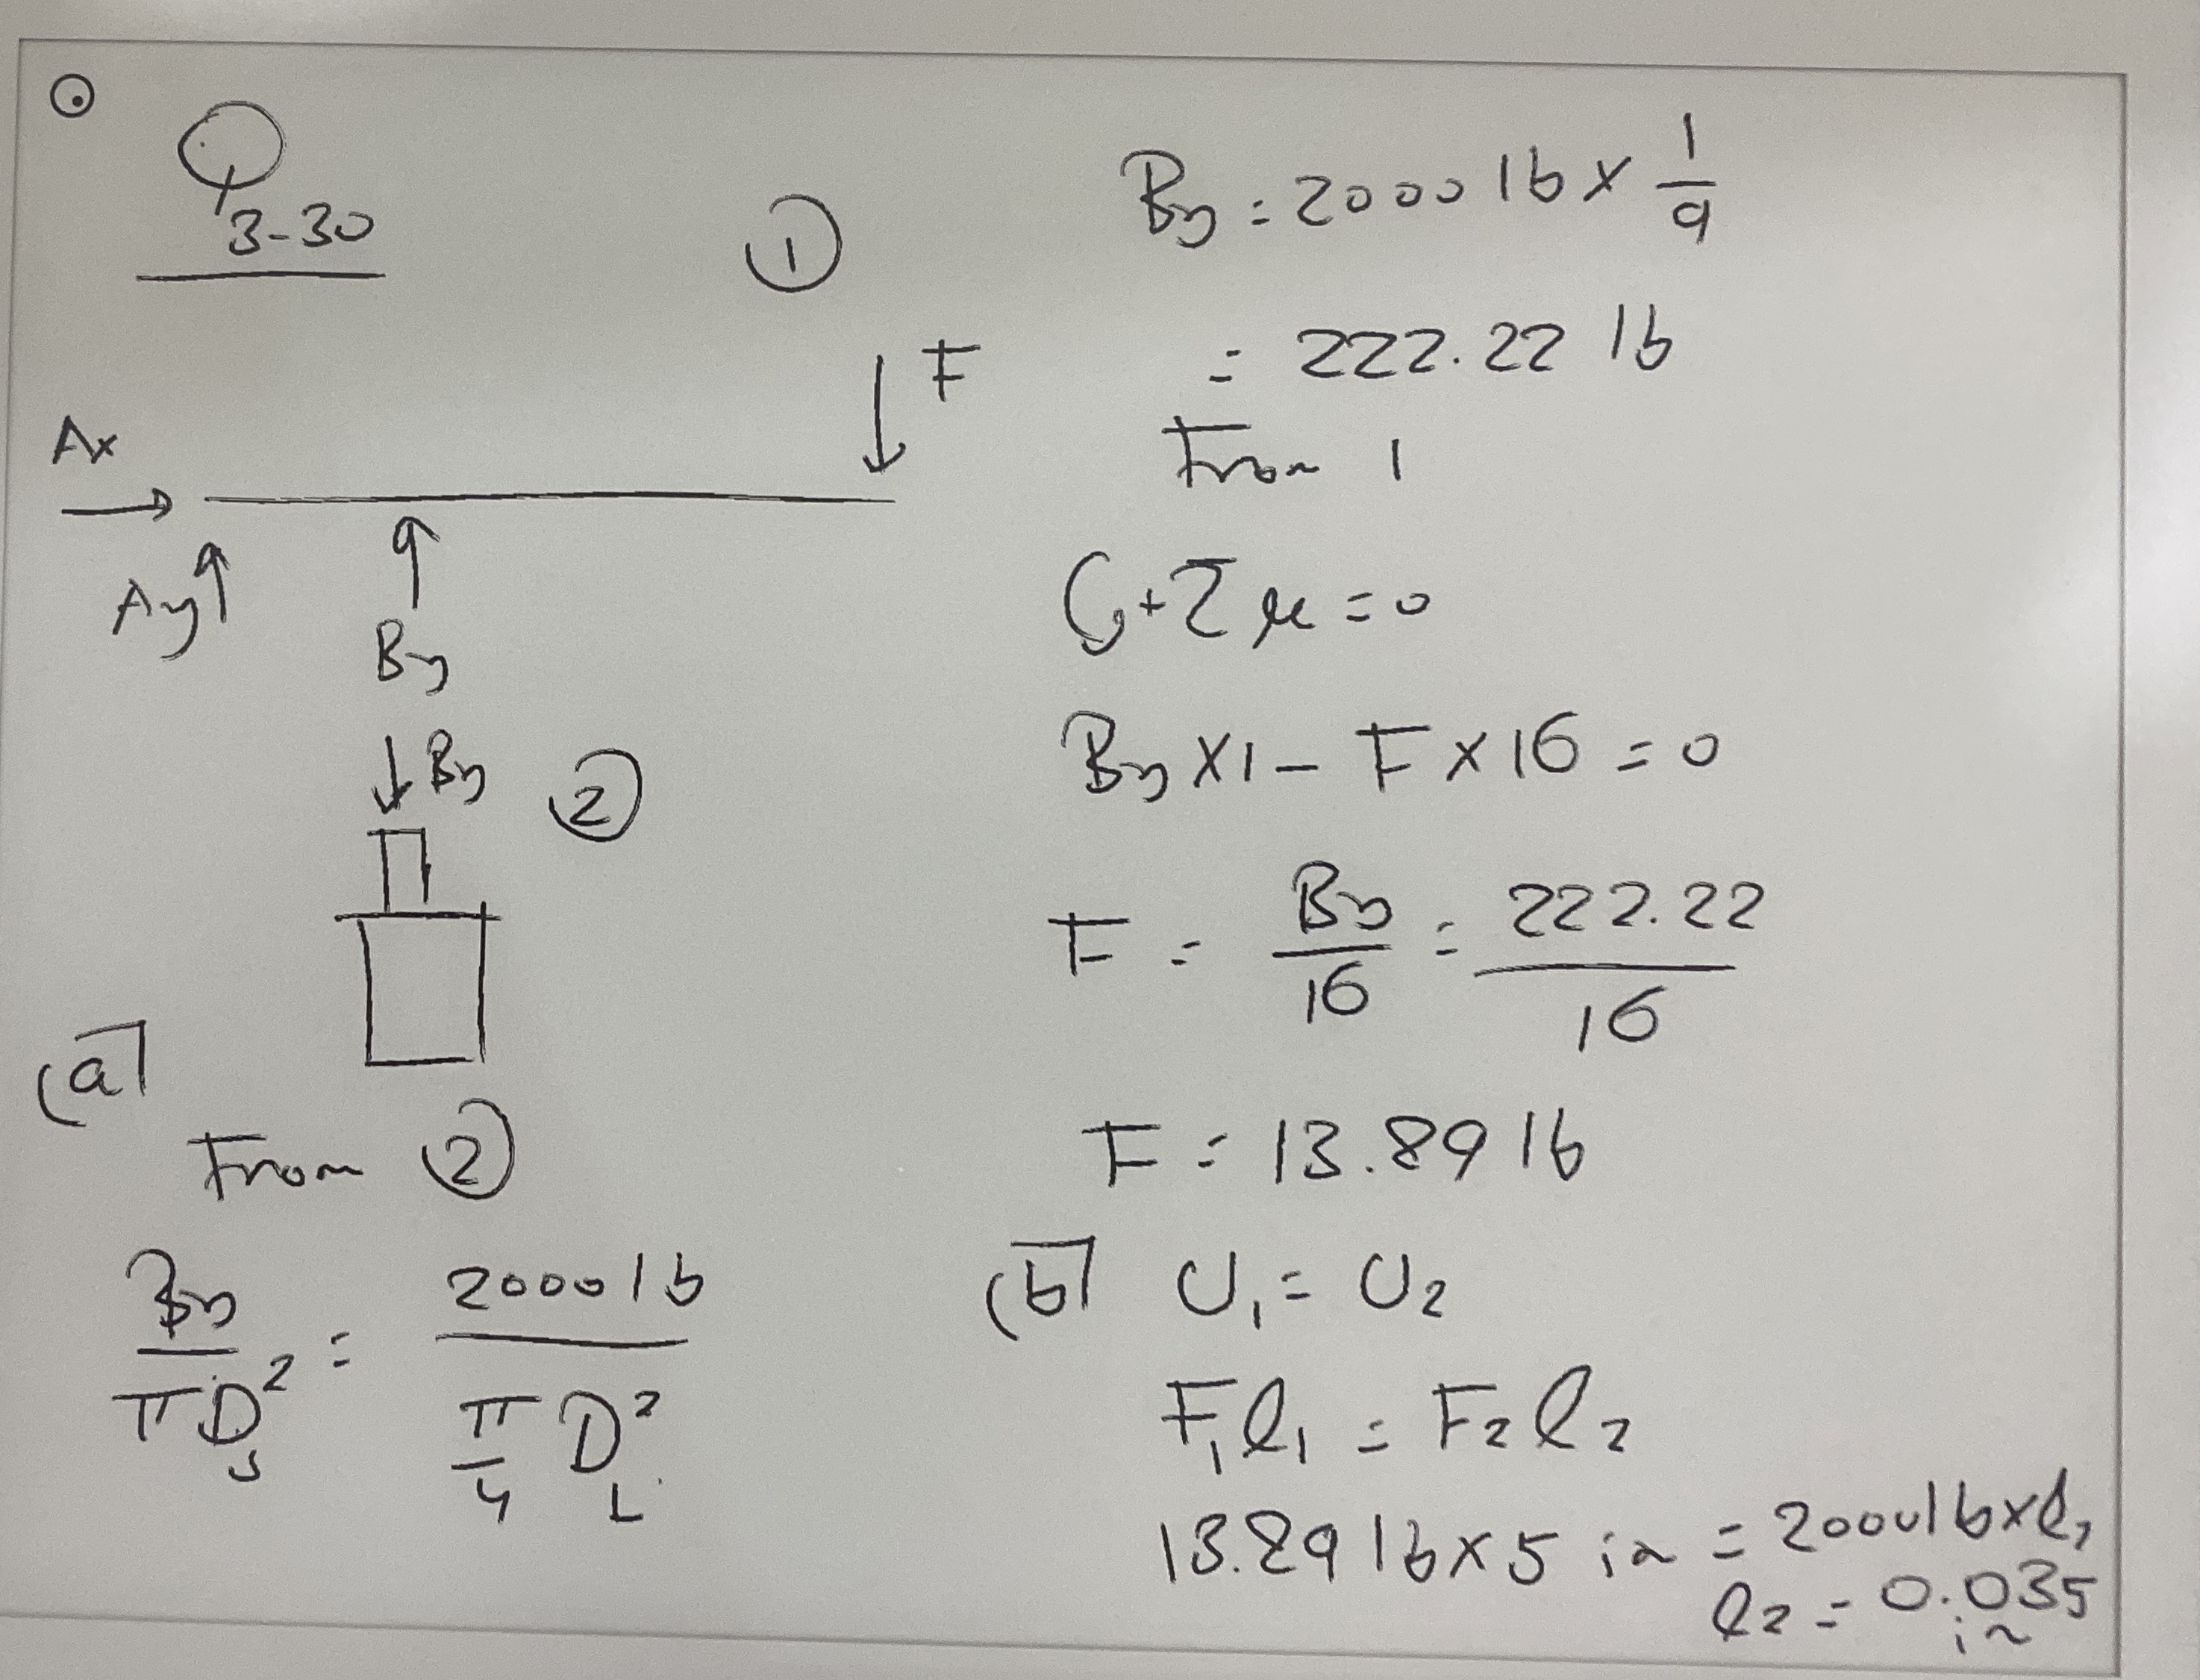 Q 3-30
①
F
Ax
Ay
By
By
②
(a)
From ②
By/πDs² = 2000 lb/(π/4 D²L)
By = 2000 lb × 1/9
= 222.22 lb
From 1
+Σμ=0
By×1 - F×16 = 0
F = By/16 = 222.22/16
F = 13.89 lb
(b) U₁ = U₂
F₁l₁ = F₂l₂
13.89 lb×5 in = 2000 lb×l₂
l₂ = 0.035 in